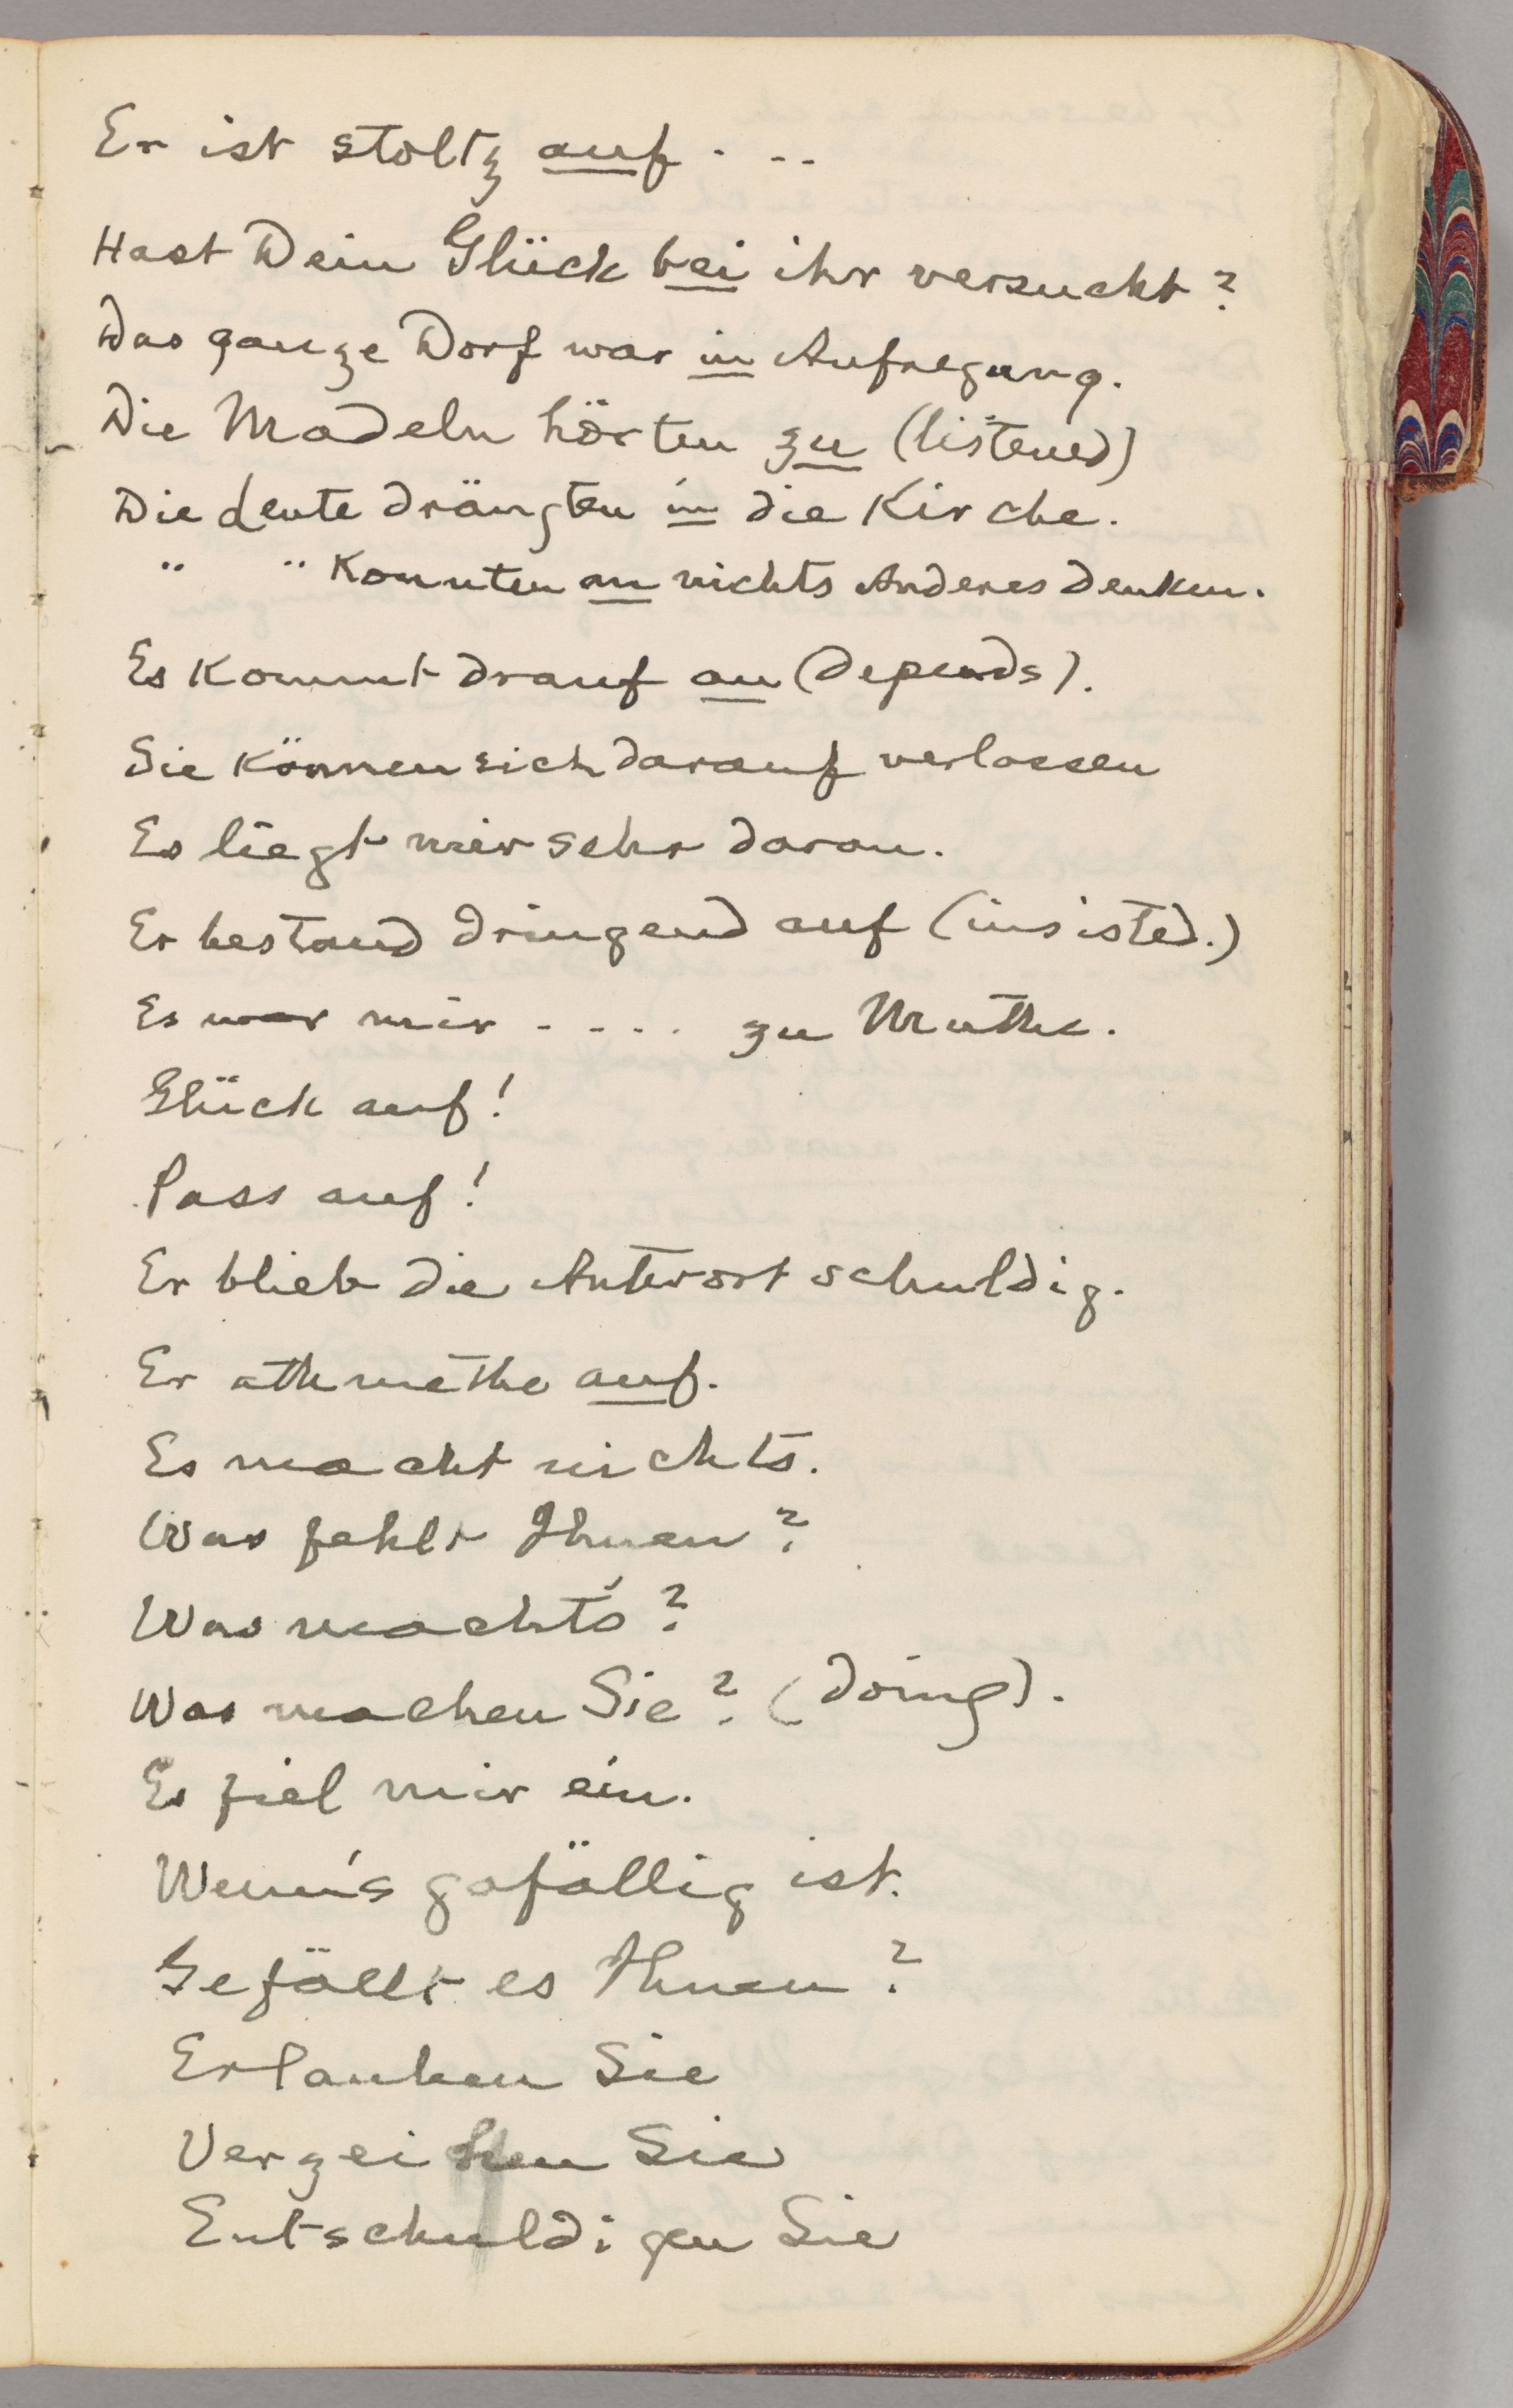 Er ist stoltz auf . . .
Hast Dein Glück bei ihr versucht?
Das ganze Dorf war in Aufregung.
Die Madeln hörten zu (listened)
Die Leute drängten in die Kirche.
" " Konnten an nichts Anderes denken.
Es Kommt drauf an (depends).
Sie Können sich darauf verlassen
Es liegt mir sehr daran.
Er bestand dringend auf (insisted.)
Es war mir . . . . zu Muthe.
Glück auf!
Pass auf!
Er blieb die Antwort schuldig.
Er athmethe auf.
Es macht nichts.
Was fehlt Ihnen?
Was macht's?
Was machen Sie? (doing).
Es fiel mir ein.
Wenn's gefällig ist.
Gefällt es Ihnen?
Erlauben Sie
Verzeihen Sie
Entschuldigen Sie